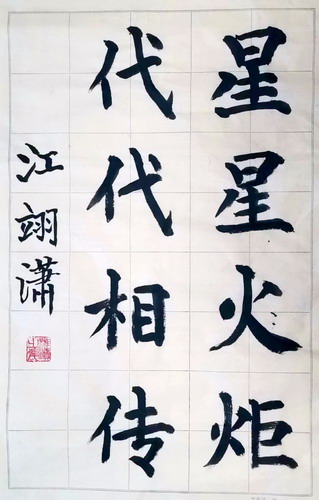 星星火炬
代代相传
江翊潇